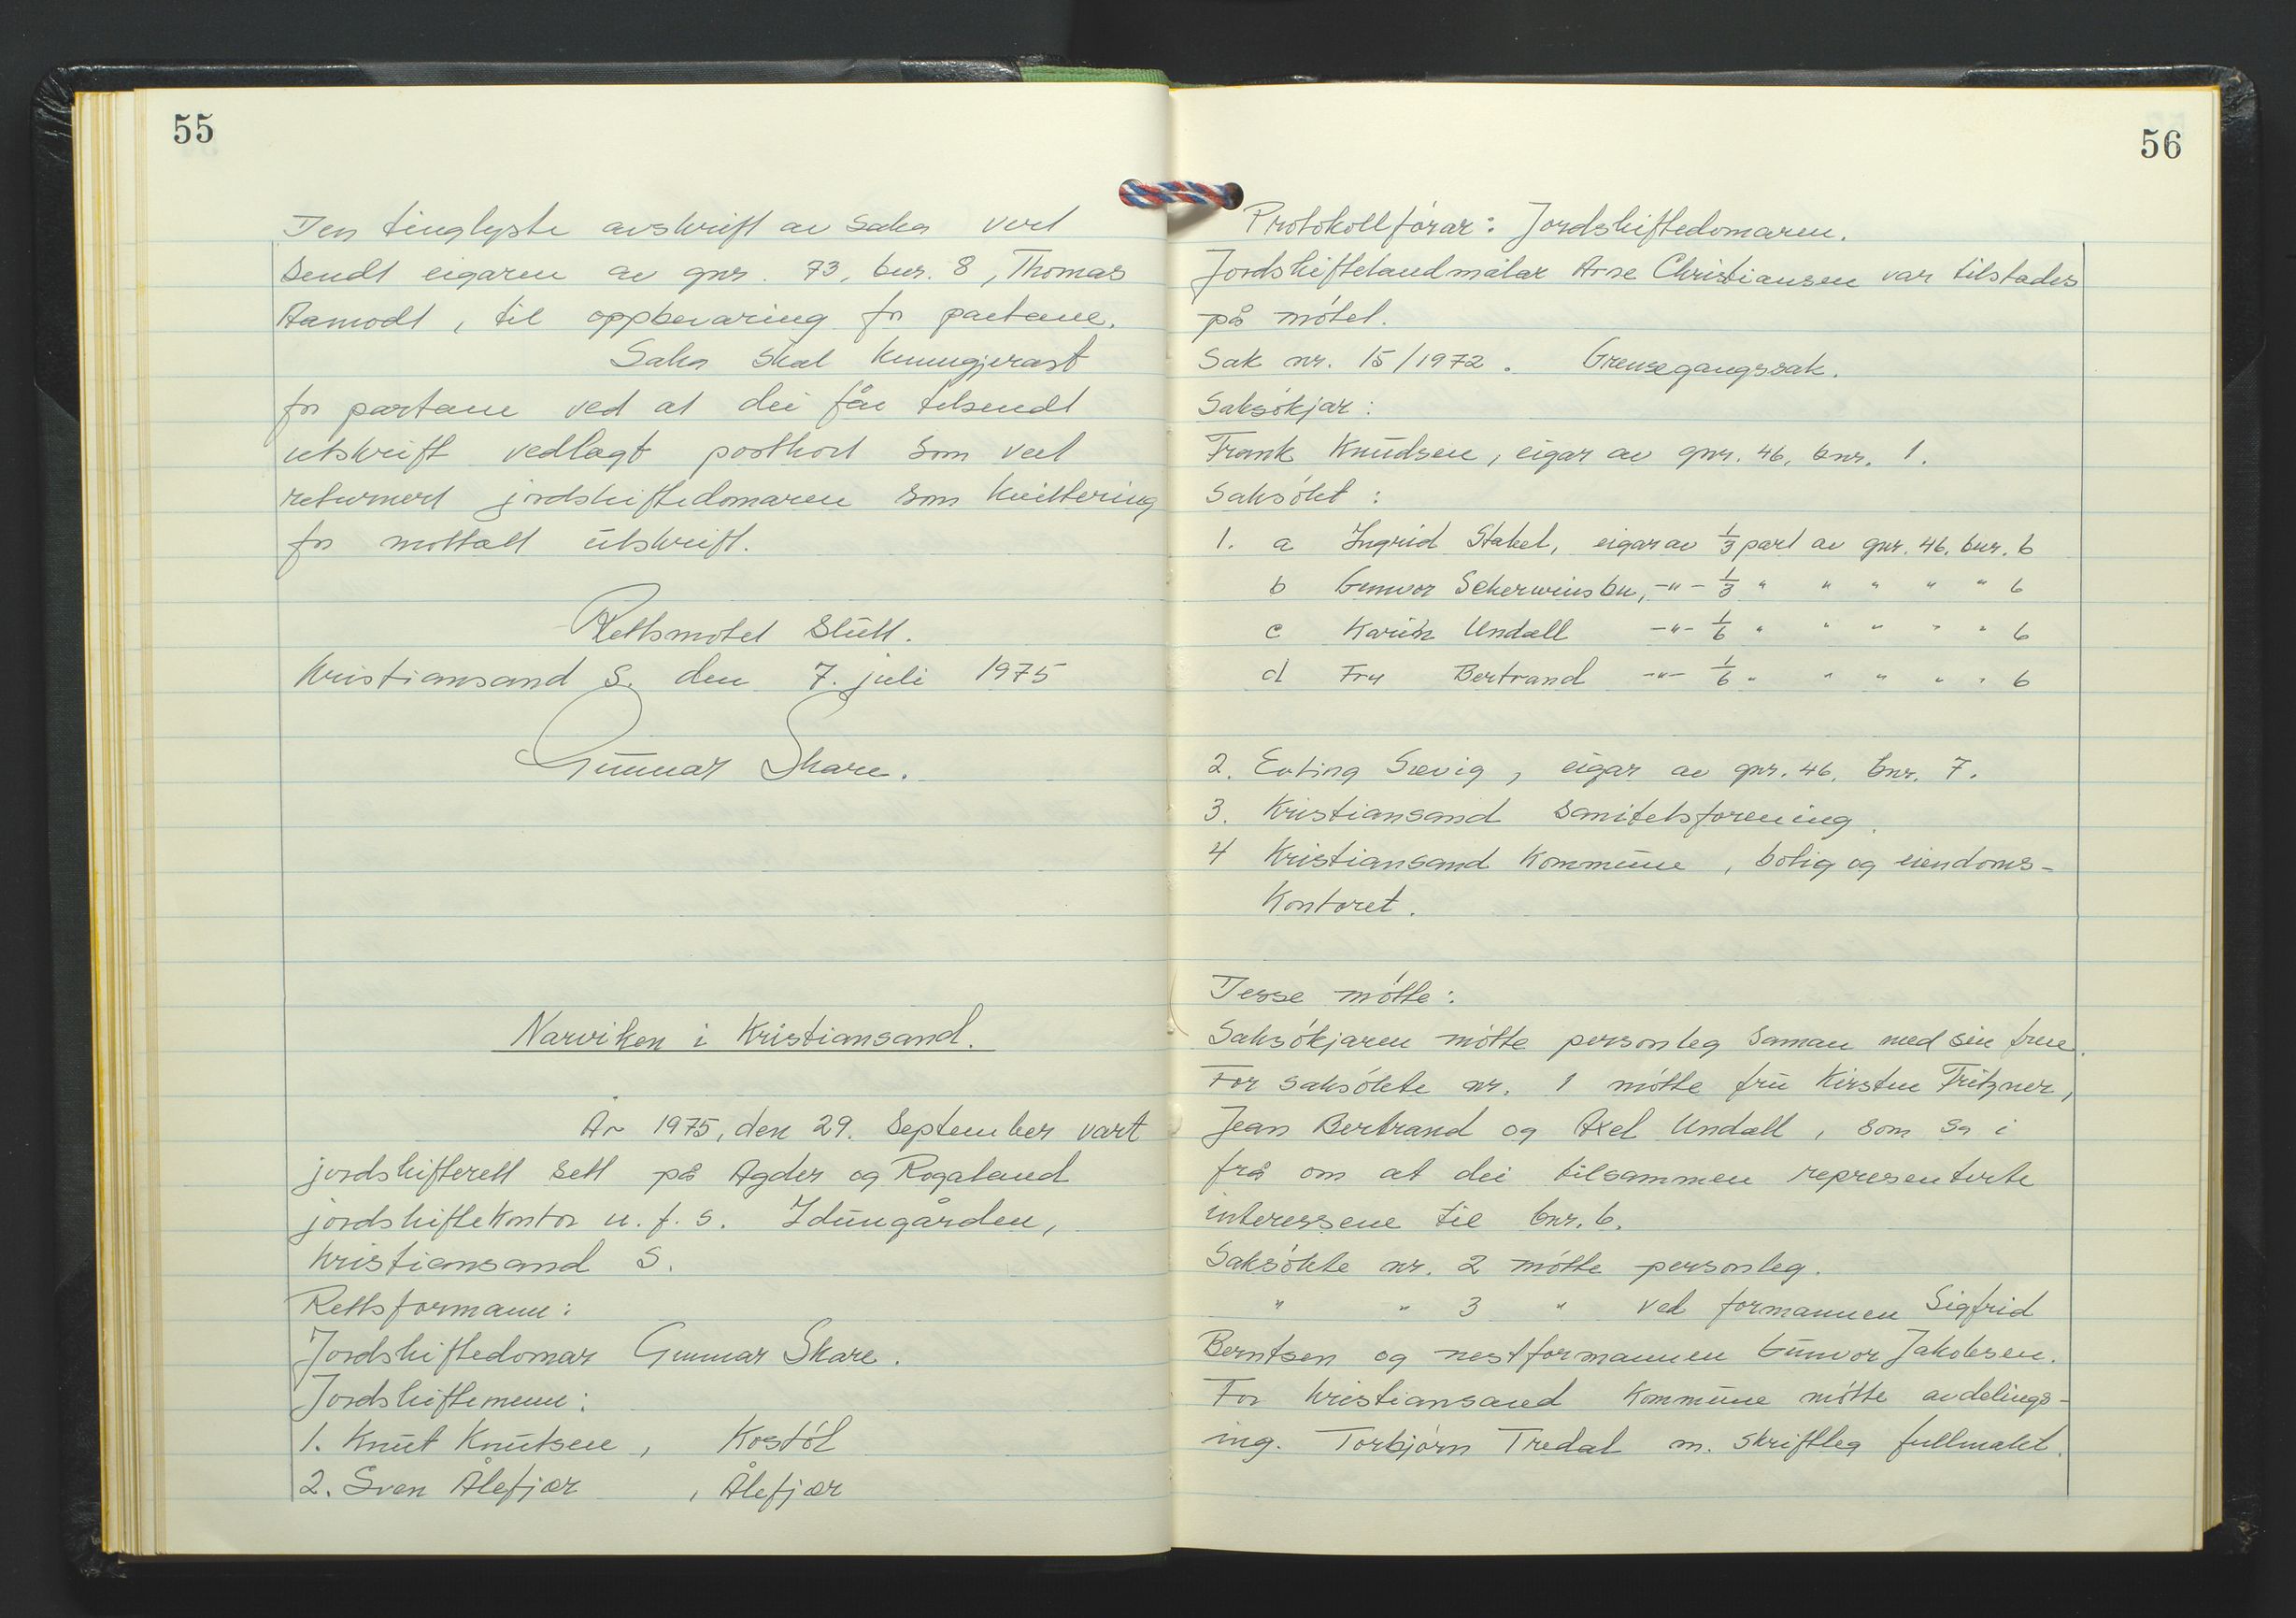 55
Den tinglyste avskrift av saka vert
sendt eigaren av gnr. 73, bnr. 8, Thomas
Aamodt, til oppbevaring for partane.
Saka skal kunngjerast
for partane ved at dei får tilsendt
utskrift vedlagt postkort som vert
returnert jordskiftedomaren som kvittering
for mottatt utskrift.
Rettsmøtet slutt.
Kristiansand S. den 7. juli 1975
Gunnar Skare.
Narviken i Kristiansand.
År 1975, den 29. September vart
jordskifterett sett på Agder og Rogaland
jordskiftekontor n. f. s. Idungården,
Kristiansand S.
Rettsformann:
Jordskiftedomar Gunnar Skare.
Jordskiftemenn:
1. Knut Knutsen, Kostøl
2. Sven Ålefjær, Ålefjær
56
Protokollførar: Jordskiftedomaren.
Jordskiftelandmålar Arne Christiansen var tilstades
på møtet.
Sak nr. 15/1972. Grensegangssak.
Saksøkjar:
Frank Knudsen, eigar av gnr. 46, bnr. 1.
Saksøkt:
1. a Ingrid Stakel, eigar av 1/3 part av gnr. 46, bnr. 6
b Gunvor -"- 1/3 " " " " " 6
c Karin Undall -"- 1/6 " " " " " 6
d Fru Bertrand -"- 1/6 " " " " " 6
2. Erling Sævig, eigar av gnr. 46, bnr. 7.
3. Kristiansand Sanitetsforening.
4 Kristiansand Kommune, bolig og eiendoms-
kontoret.
Desse møtte:
Saksøkjaren møtte personleg saman med sin frue.
For saksøkte nr. 1 møtte fru Kirsten Fritzner,
Jean Bertrand og Axel Undall, som sa i
frå om at dei tilsammen representerte
interessene til bnr. 6.
Saksøkte nr. 2 møtte personleg.
" " 3 " ved formannen Sigfrid
Berntsen og nestformannen Gunvor Jakobsen.
For Kristiansand Kommune møtte avdelings-
ing. Torbjørn Tredal m. skriftleg fullmakt.